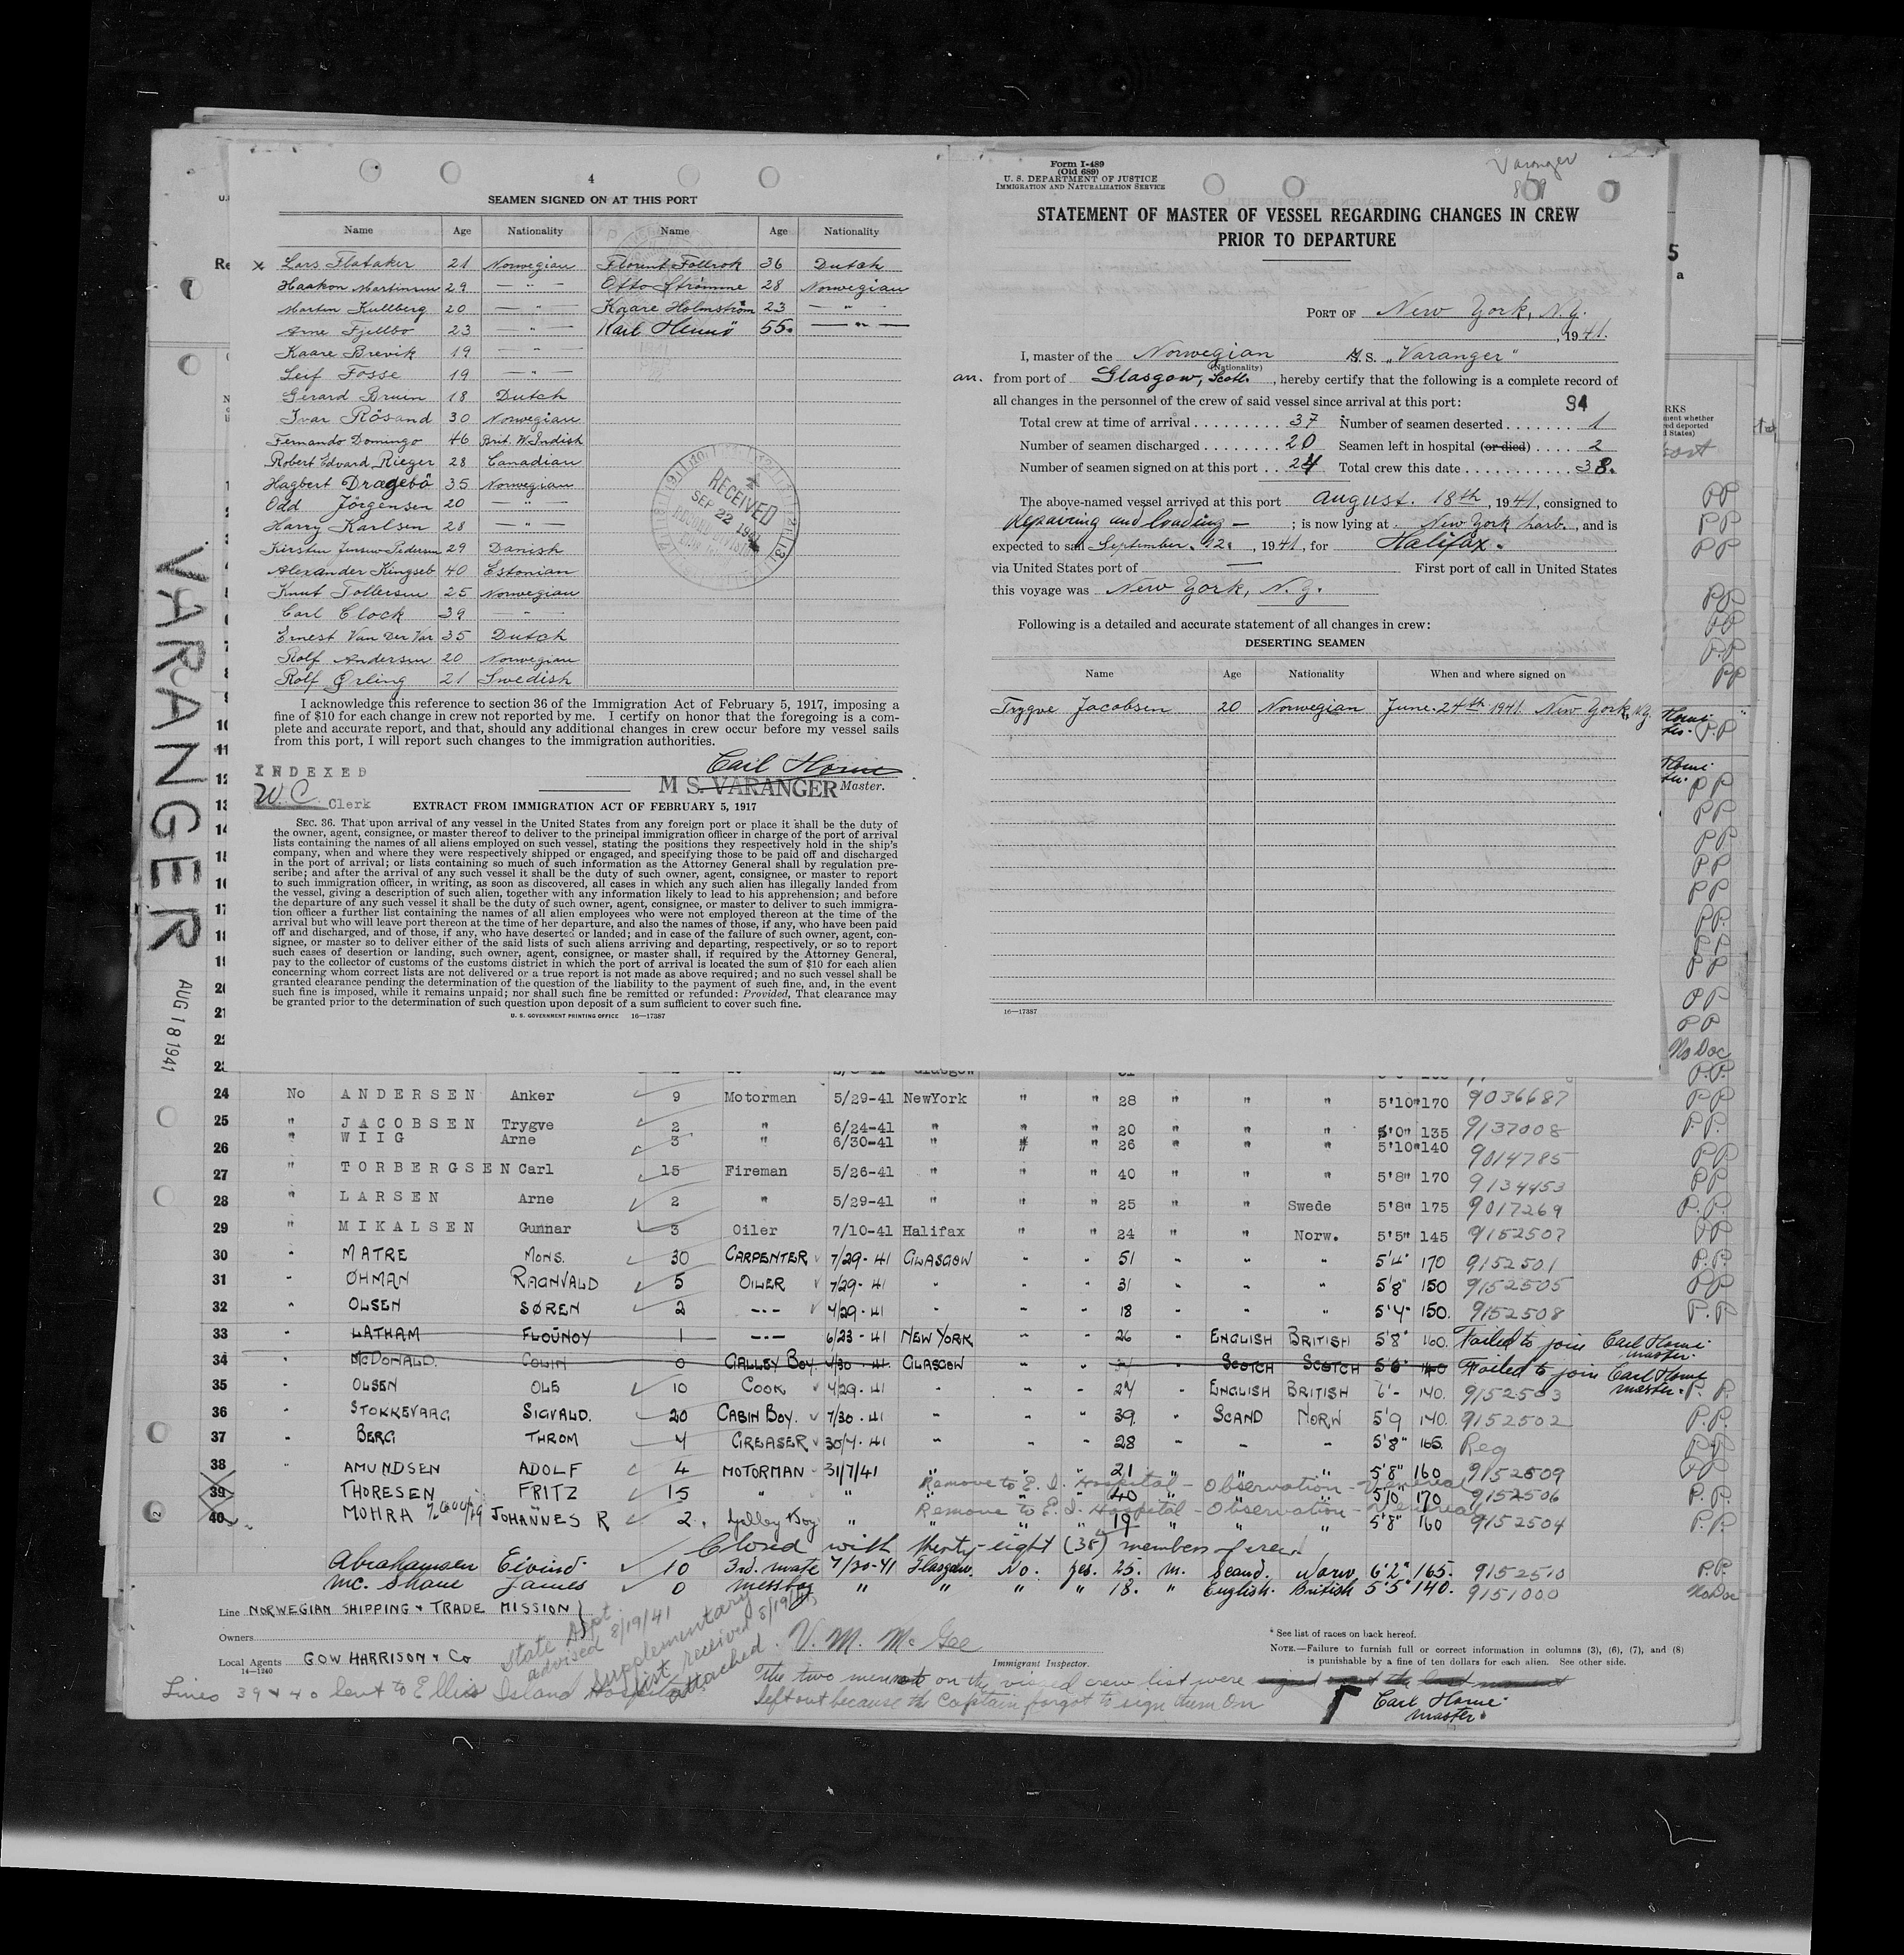 4
SEAMEN SIGNED ON AT THIS PORT
Name Age Nationality Name Age Nationality
x Lars Flataker 21 Norwegian Florent Follrok 36 Dutch
Haakon Martinsen 29 — " — Otto Strømme 28 Norwegian
Martin Kullberg 20 — " — Kaare Holmström 23 — " —
Arne Fjellbo 23 — " — Karl Hennö 55. — " —
Kaare Brevik 19 — " —
Leif Fosse 19 — " —
Gerard Bruin 18 Dutch
Ivar Rösand 30 Norwegian
Fernando Domingo 46 Brit. W. Indish
Robert Edvard Rieger 28 Canadian
Hagbert Dragebö 35 Norwegian
Odd Jörgensen 20 — " —
Harry Karlsen 28 — " —
Kirsten Pedersen 29 Danish
Alexander Kingseb 40 Estonian
Knut Tollersen 25 Norwegian
Carl Clock 39 — " —
Ernest Van Der Var 35 Dutch
Rolf Andersen 20 Norwegian
Rolf Ørling 21 Swedish
RECEIVED
SEP 22 1941
I acknowledge this reference to section 36 of the Immigration Act of February 5, 1917, imposing a
fine of $10 for each change in crew not reported by me. I certify on honor that the foregoing is a com-
plete and accurate report, and that, should any additional changes in crew occur before my vessel sails
from this port, I will report such changes to the immigration authorities.
INDEXED
W.C. Clerk
Carl Horne
M S. VARANGER Master.
EXTRACT FROM IMMIGRATION ACT OF FEBRUARY 5, 1917
SEC. 36. That upon arrival of any vessel in the United States from any foreign port or place it shall be the duty of
the owner, agent, consignee, or master thereof to deliver to the principal immigration officer in charge of the port of arrival
lists containing the names of all aliens employed on such vessel, stating the positions they respectively hold in the ship's
company, when and where they were respectively shipped or engaged, and specifying those to be paid off and discharged
in the port of arrival; or lists containing so much of such information as the Attorney General shall by regulation pre-
scribe; and after the arrival of any such vessel it shall be the duty of such owner, agent, consignee, or master to report
to such immigration officer, in writing, as soon as discovered, all cases in which any such alien has illegally landed from
the vessel, giving a description of such alien, together with any information likely to lead to his apprehension; and before
the departure of any such vessel it shall be the duty of such owner, agent, consignee, or master to deliver to such immigra-
tion officer a further list containing the names of all alien employees who were not employed thereon at the time of the
arrival but who will leave port thereon at the time of her departure, and also the names of those, if any, who have been paid
off and discharged, and of those, if any, who have deserted or landed; and in case of the failure of such owner, agent, con-
signee, or master so to deliver either of the said lists of such aliens arriving and departing, respectively, or so to report
such cases of desertion or landing, such owner, agent, consignee, or master shall, if required by the Attorney General,
pay to the collector of customs of the customs district in which the port of arrival is located the sum of $10 for each alien
concerning whom correct lists are not delivered or a true report is not made as above required; and no such vessel shall be
granted clearance pending the determination of the question of the liability to the payment of such fine, and, in the event
such fine is imposed, while it remains unpaid; nor shall such fine be remitted or refunded: Provided, That clearance may
be granted prior to the determination of such question upon deposit of a sum sufficient to cover such fine.
U. S. GOVERNMENT PRINTING OFFICE 16—17387
Form I-489
(Old 689)
U. S. DEPARTMENT OF JUSTICE
IMMIGRATION AND NATURALIZATION SERVICE
Varanger
STATEMENT OF MASTER OF VESSEL REGARDING CHANGES IN CREW
PRIOR TO DEPARTURE
PORT OF New York, N.Y.
, 1941.
I, master of the Norwegian M.S. "Varanger"
(Nationality)
arr. from port of Glasgow, Scotl. , hereby certify that the following is a complete record of
all changes in the personnel of the crew of said vessel since arrival at this port: 94
Total crew at time of arrival . . . . . . . . . 37 Number of seamen deserted . . . . . . . 1
Number of seamen discharged . . . . . . . 20 Seamen left in hospital (or died) . . . . 2
Number of seamen signed on at this port . . 24 Total crew this date . . . . . . . . . . . 38.
The above-named vessel arrived at this port August. 18th, 1941, consigned to
Repairing and loading — ; is now lying at New York harb., and is
expected to sail September. 12. , 1941, for Halifax.
via United States port of — First port of call in United States
this voyage was New York, N.Y.
Following is a detailed and accurate statement of all changes in crew:
DESERTING SEAMEN
Name Age Nationality When and where signed on
Trygve Jacobsen 20 Norwegian June. 24th 1941. New York, N.Y.
16—17387
VARANGER
AUG 18 1941
24 No ANDERSEN Anker 9 Motorman 5/29-41 NewYork " " 28 " " " 5'10" 170 9036687 PP
25 " JACOBSEN Trygve 2 " 6/24-41 " " " 20 " " " 5'0" 135 9137008 P.P.
26 " WIIG Arne 3 " 6/30-41 " " " 26 " " " 5'10" 140 9014785 PP
27 " TORBERGSEN Carl 15 Fireman 5/26-41 " " " 40 " " " 5'8" 170 9134453 PP
28 " LARSEN Arne 2 " 5/29-41 " " " 25 " " Swede 5'8" 175 9017269 P.P.
29 " MIKALSEN Gunnar 3 Oiler 7/10-41 Halifax " " 24 " " Norw. 5'5" 145 9152507 PP
30 " MATRE MONS. 30 CARPENTER 7/29-41 GLASGOW " " 51 " " " 5'4" 170 9152501 P.P.
31 " ØHMAN RAGNVALD 5 OILER 7/29-41 " " " 31 " " " 5'8" 150 9152505 PP
32 " OLSEN SØREN 2 —"— 4/29-41 " " " 18 " " " 5'4" 150. 9152508 P.P
33 " LATHAM FLOUNOY 1 —"— 6/23-41 NEW YORK " " 26 " ENGLISH BRITISH 5'8" 160. Failed to join Carl Horne master.
34 " McDONALD. COLIN 0 GALLEY BOY 4/30-41. GLASGOW " " " SCOTCH SCOTCH 5'6" 140 Failed to join Carl Horne master.
35 " OLSEN OLE 10 COOK 4/29-41 " " " 27 " ENGLISH BRITISH 6'- 140. 9152503 P.P.
36 " STOKKEVAAG SIGVALD. 20 CABIN BOY. 7/30-41 " " " 39. " SCAND NORW 5'9 140. 9152502 P.P.
37 " BERG THROM 4 GREASER 30/4-41 " " " 28 " " " 5'8" 165. Reg PP
38 " AMUNDSEN ADOLF 4 MOTORMAN 31/7/41 " " " 21 " " " 5'8" 160 9152509 PP
Remove to E. I. Hospital - Observation - Venereal
39 THORESEN FRITZ 15 " " " " " 40 " " " 5'10" 170 9152506 P.P.
Remove to E. I. Hospital - Observation - Venereal
40 MOHRA JOHANNES R 2. Galley Boy " " " " 19 " " " 5'8" 160 9152504 P.P.
Closed with thirty-eight (38) members of crew
Abrahamsen Eivind 10 3rd. mate 7/30-41 Glasgow. No. yes. 25. m. Scand. Norw. 6'2" 165. 9152510 P.P.
Mc. Shane James 0 messboy " " " " 18. " English. British 5'5" 140. 9151000 No Doc
Line NORWEGIAN SHIPPING & TRADE MISSION
Owners
Local Agents GOW HARRISON & Co
14—1240
State Dept. advised 8/19/41
Supplementary list received 8/19/41 attached.
V. M. McGee
Immigrant Inspector.
* See list of races on back hereof.
NOTE.—Failure to furnish full or correct information in columns (3), (6), (7), and (8)
is punishable by a fine of ten dollars for each alien. See other side.
Lines 39 & 40 sent to Ellis Island Hospital
The two men not on the visaed crew list were
left out because the Captain forgot to sign them on
Carl Horne
master.